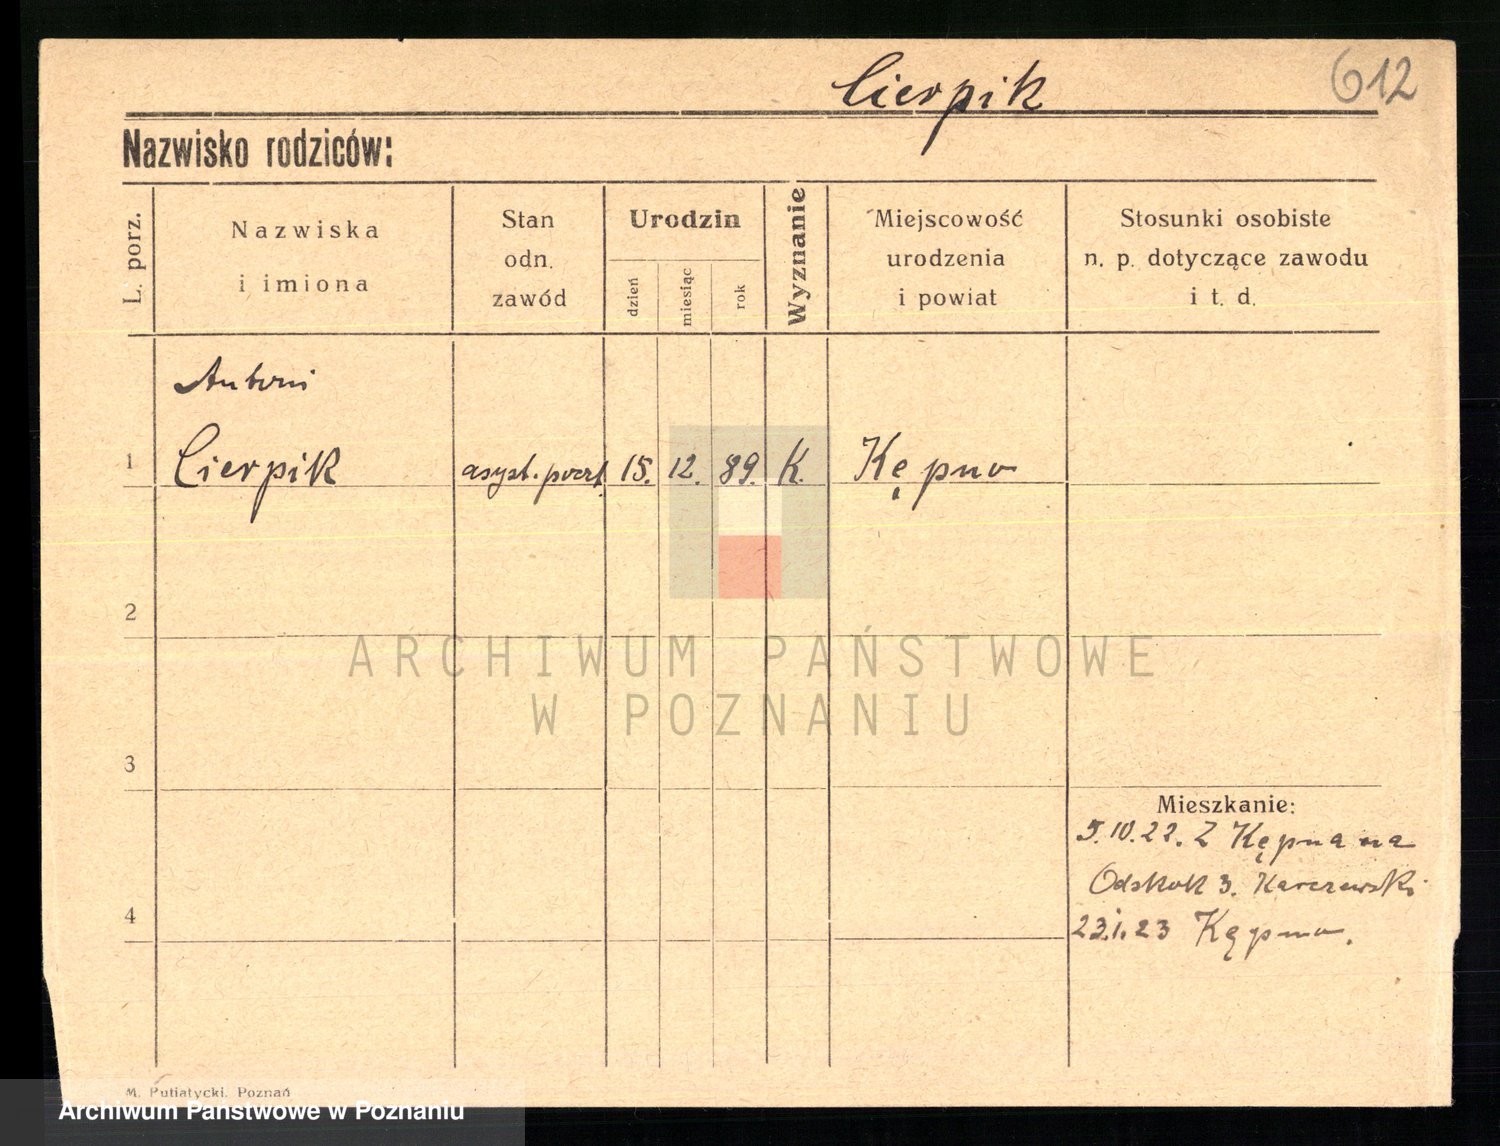 Cierpik
612
Nazwisko rodziców:
L. porz.
Nazwiska
i imiona
Stan
odn.
zawód
Urodzin
dzień
miesiąc
rok
Wyznanie
Miejscowość
urodzenia
i powiat
Stosunki osobiste
n. p. dotyczące zawodu
i t. d.
Antoni
1 Cierpik asyst. poczt. 15. 12. 89. K. Kępno
2
3
4
Mieszkanie:
5.10.22. Z Kępna na
Odskok 3. Karczewski
23.1.23 Kępno.
ARCHIWUM PAŃSTWOWE
W POZNANIU
M. Putiatycki. Poznań
Archiwum Państwowe w Poznaniu